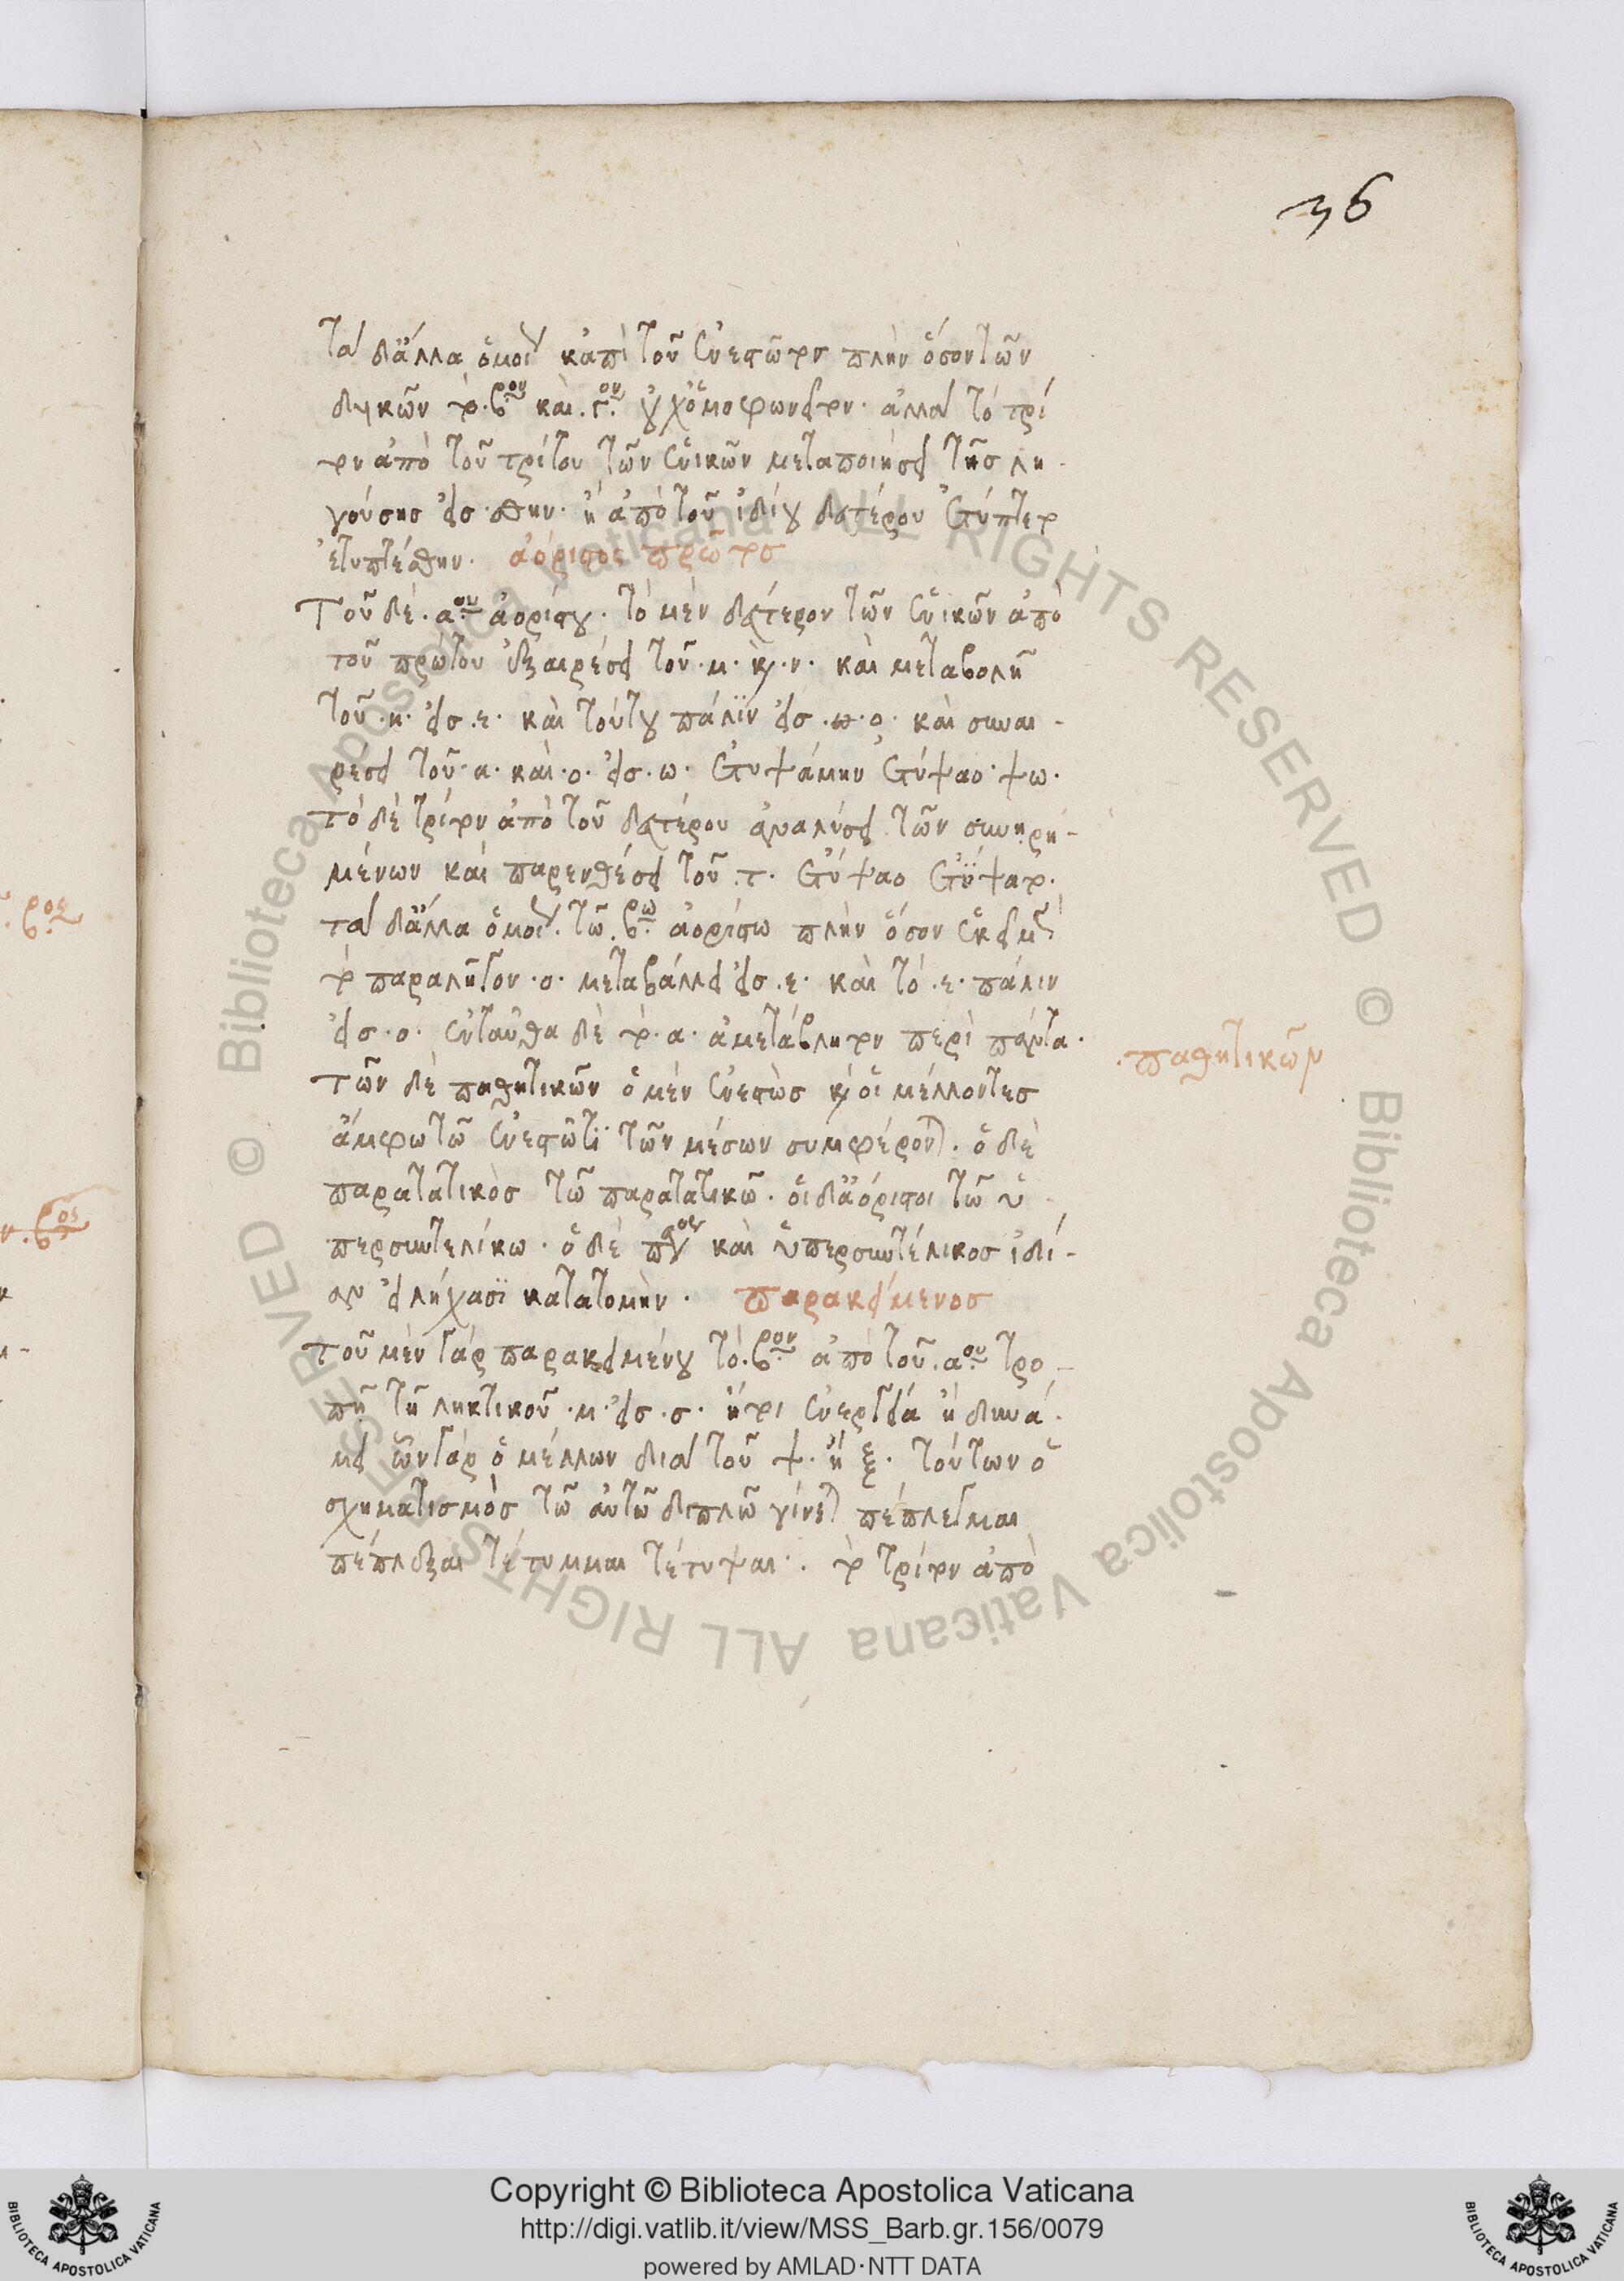 36
τὰ δἄλλα ὁμοί κἀπὶ τοῦ ἐνεστῶτος πλὴν ὅσον τῶν
δυικῶν τὸ .βρον καὶ .γον οὐχ ὁμοφωνεῖτον. ἀλλὰ τὸ τρί
τον ἀπὸ τοῦ τρίτου τῶν ἑνικῶν μεταποιήσει τῆσ λη-
γούσησ εἰσ .σθην. ἢ ἀπὸ τοῦ ἰδίου δευτέρου ἐτύπτετο
ἐτυπτέσθην. ἀόριστος πρῶτοσ
Τοῦ δὲ .αου ἀορίστου. τὸ μὲν δεύτερον τῶν ἑνικῶν ἀπὸ
τοῦ πρώτου ἐξαιρέσει τοῦ .μ. καὶ .ν. καὶ μεταβολῇ
τοῦ .η. εἰσ .ε. καὶ τούτου πάλϊν εἰσ .ο. καὶ συναι-
ρέσει τοῦ .α. καὶ .ο. εἰσ .ω. ἐτυψάμην ἐτύψαο .ψω.
τὸ δὲ τρίτον ἀπὸ τοῦ δευτέρου ἀναλύσει τῶν συνηρη-
μένων καὶ παρενθέσει τοῦ .τ. ἐτύψαο ἐτύψατο.
τὰ δἄλλα ὁμοί τῶ .βρω ἀορίστω πλὴν ὅσον ἐκεῖ μὲν
τὸ παραλῆγον .ο. μεταβάλλει εἰσ .ε. καὶ τό .ε. πάλιν
εἰσ .ο. ἐνταῦθα δὲ τὸ .α. ἀμετάβλητον περὶ πάντα.
παθητικῶν
τῶν δὲ παθητικῶν ὁ μὲν ἐνεστὼσ καὶ οἱ μέλλοντεσ
ἄμφω τῶ ἐνεστῶτϊ τῶν μέσων συμφέρονται. ὁ δὲ
παρατατικὸσ τῶ παρατατικῶ. οἱ δἀόριστοι τῶ ὑ-
περσυντελίκω. ὁ δὲ καὶ ὑπερσυντέλικοσ ἰδί-
αν εἰλήχασϊ κατατομὴν. παρακείμενοσ
τοῦ μὲν γάρ παρακειμένου τὸ .βρον ἀπὸ τοῦ .αου τρο-
πῇ τῆ ληκτικοῦ .μ. εἰσ .σ. ἤτοι ἐνεργεία ἢ δυνά-
μει ὧν γάρ ὁ μέλλων διὰ τοῦ ψ. ἢ ξ. τούτων ὁ
σχηματισμὸσ τῶ αὐτῶ διπλῶ γίνεται πέπλεγμαι
πέπλεξαι τέτυμμαι τέτυψαι. τὸ τρίτον ἀπὸ
Copyright © Biblioteca Apostolica Vaticana
http://digi.vatlib.it/view/MSS_Barb.gr.156/0079
powered by AMLAD·NTT DATA
BIBLIOTECA APOSTOLICA VATICANA
BIBLIOTECA APOSTOLICA VATICANA
© Biblioteca Apostolica Vaticana ALL RIGHTS RESERVED
© Biblioteca Apostolica Vaticana ALL RIGHTS RESERVED